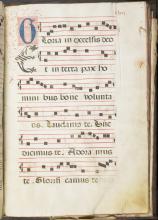 Gloria in excelsis deo
Et in terra pax ho
mini bus bone volunta
tis. Laudamus te. Bene
dicimus te. Adora mus
te. Glorifi camus te